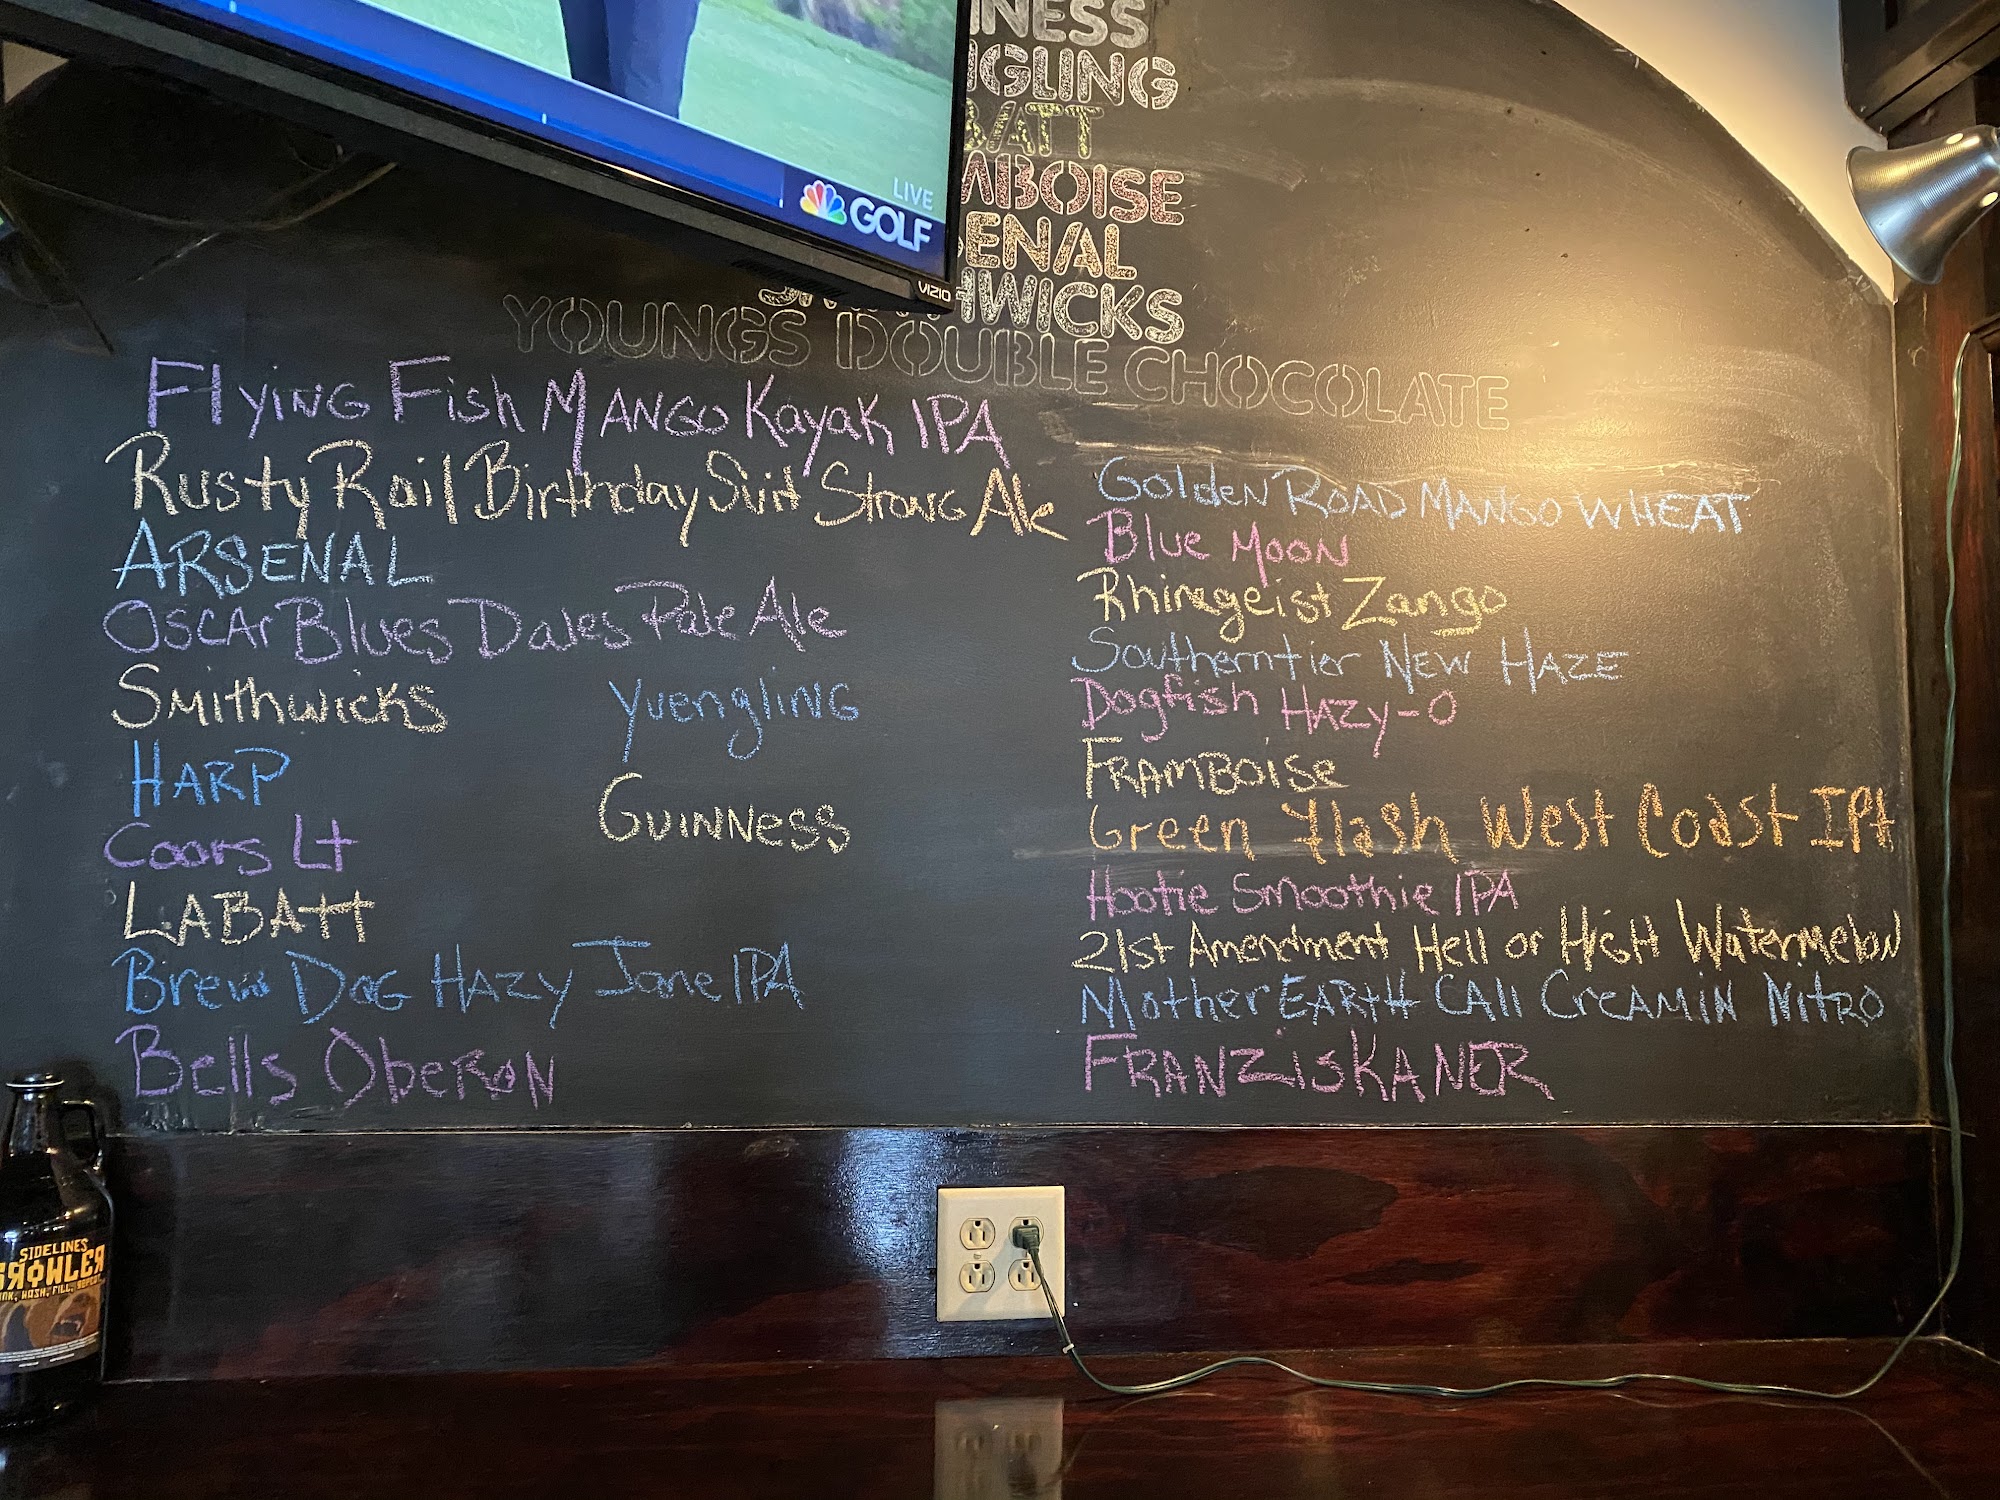 LIVE
GOLF
VIZIO
YOUNGS DOUBLE CHOCOLATE
Flying Fish Mango Kayak IPA
Rusty Rail Birthday Suit Strong Ale
ARSENAL
Oscar Blues Dales Pale Ale
Smithwicks
Yuengling
HARP
Guinness
Coors Lt
LABAtt
Brew Dog Hazy Jane IPA
Bells Oberon
Golden Road Mango Wheat
Blue Moon
Rhinegeist Zango
Southerntier New Haze
Dogfish Hazy-O
Framboise
Green Flash West Coast IPA
Hootie Smoothie IPA
21st Amendment Hell or High Watermelon
Mother Earth Call Creamin Nitro
FRANZiSKANER
SIDELINES
GROWLER
WASH, FILL, REPEAT